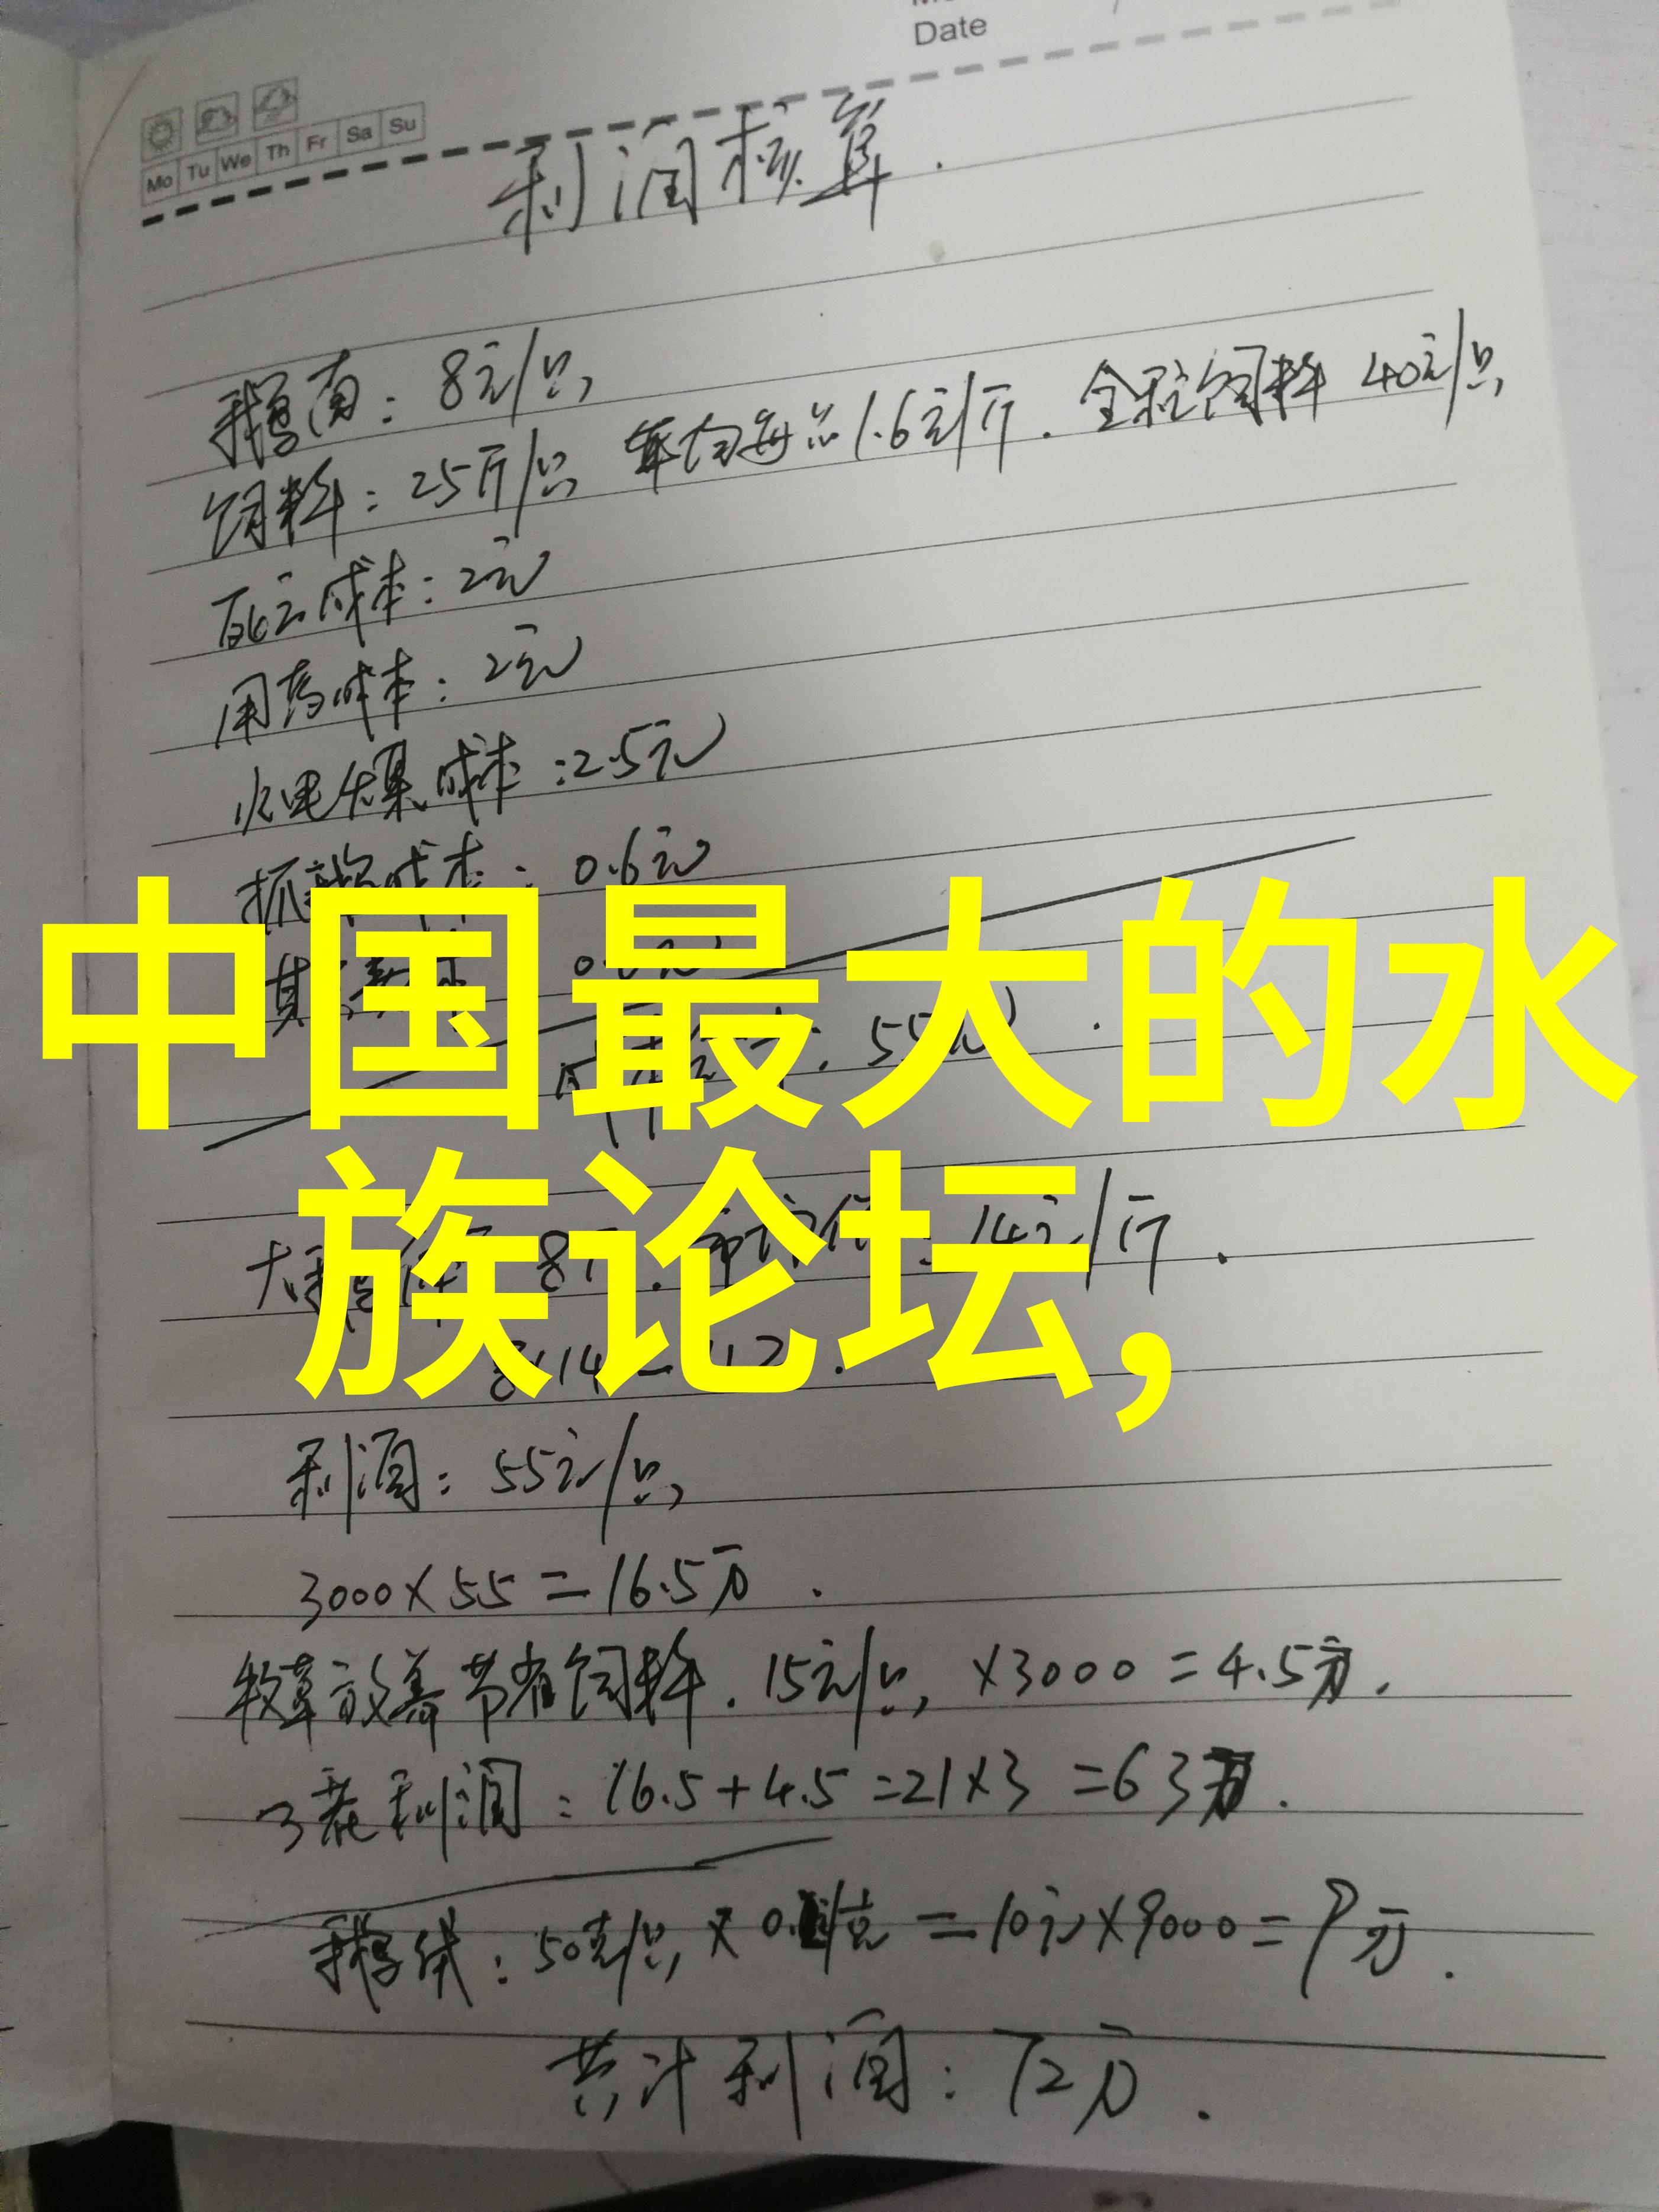 Date
Mo Tu We Th Fr Sa Su
利润核算.
鹅苗:8元/只
饲料:25斤/只 平均每斤1.6元/斤.全程饲料 40元/只
死亡成本:2元
用药成本:2元
水电煤成本:2.5元
抓鹅成本:0.6元
中国最大的水
族论坛,
14元/斤.
利润:55元/只
3000×55=16.5万.
牧草放养节省饲料.15元/只,×3000=4.5万.
3茬利润:16.5+4.5=21×3=63万.
鹅绒:50克/只×0. /克=10元×9000=9万.
共计利润:72万.